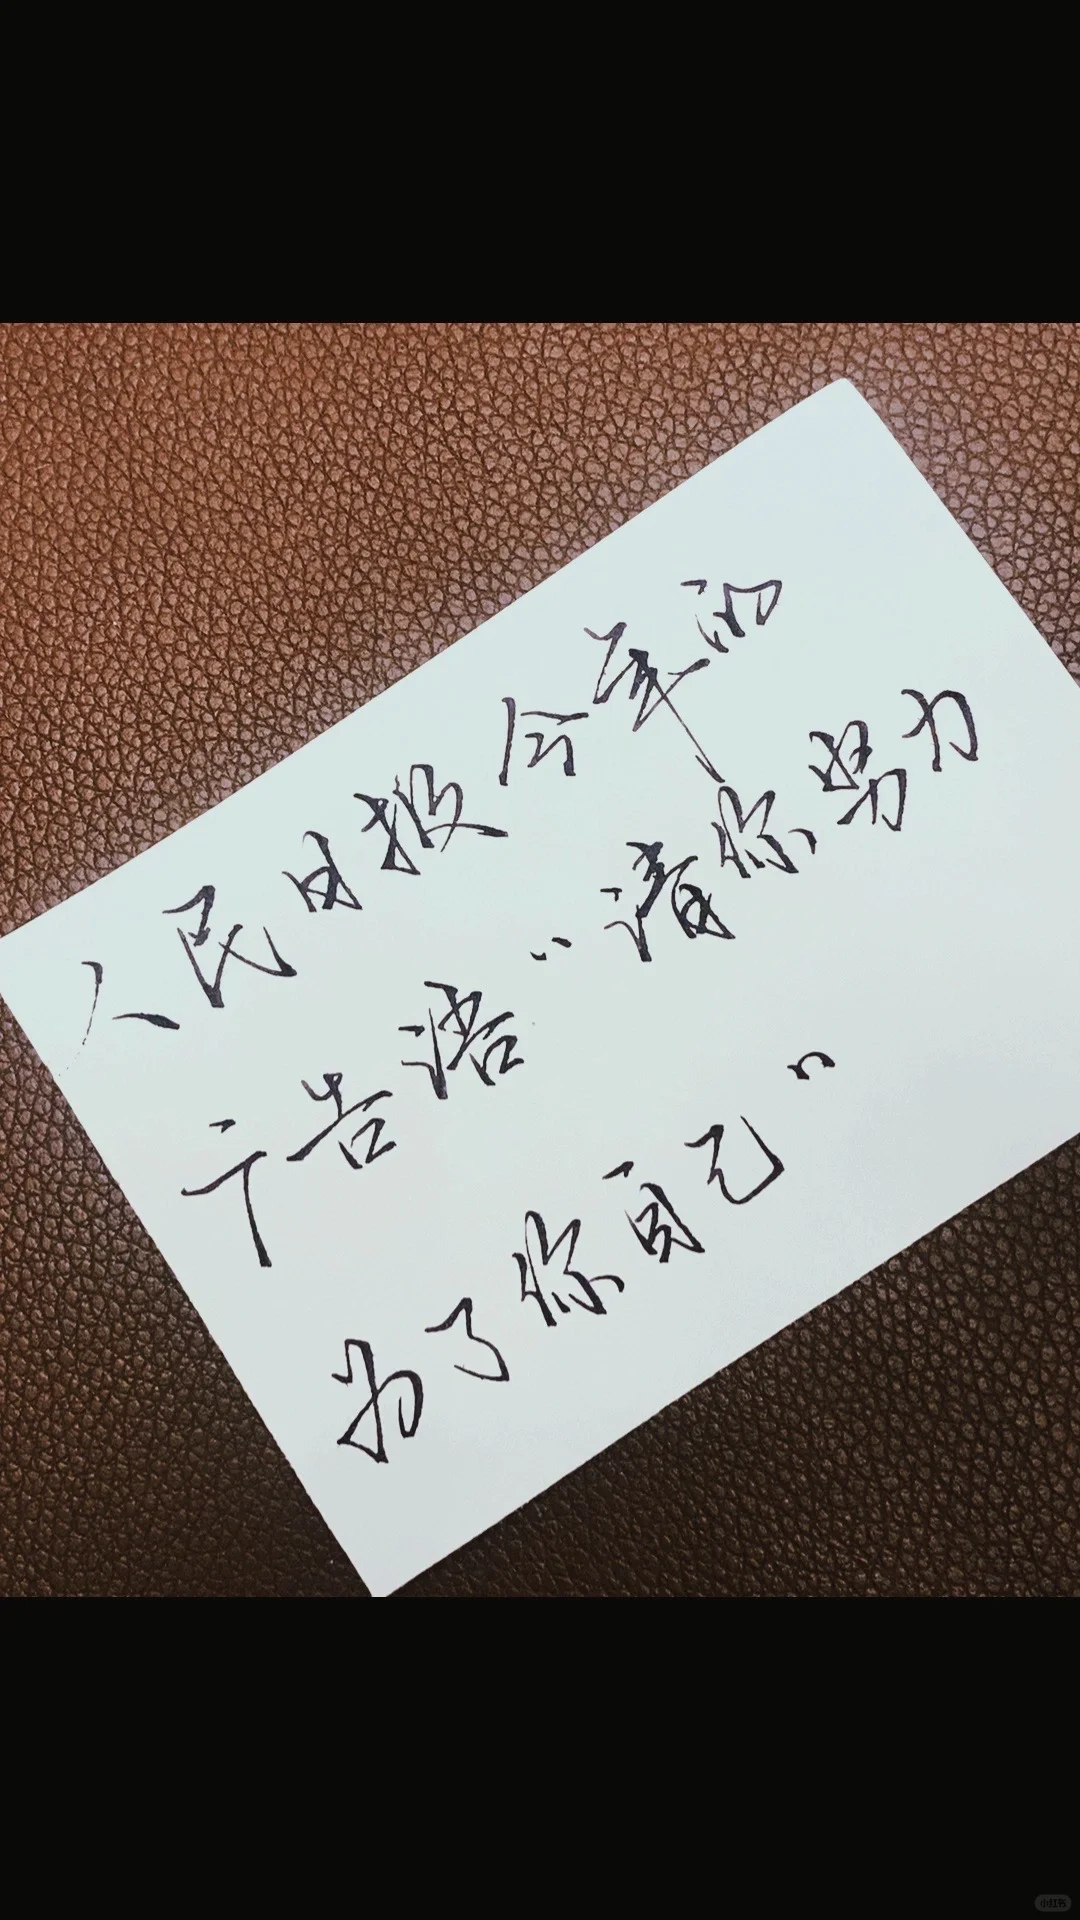 人民日报今年的
广告语“请你努力
为了你自己”
小红书